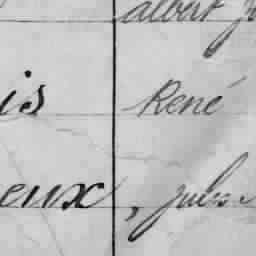 albert
is René
eux, jules